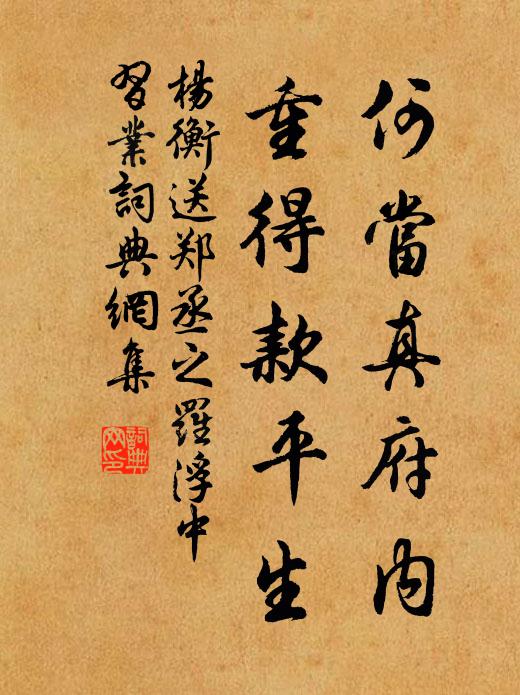 何當真府內
重得款平生
楊衡送郑丞之羅浮中
習業詞典網集
詞典
网印